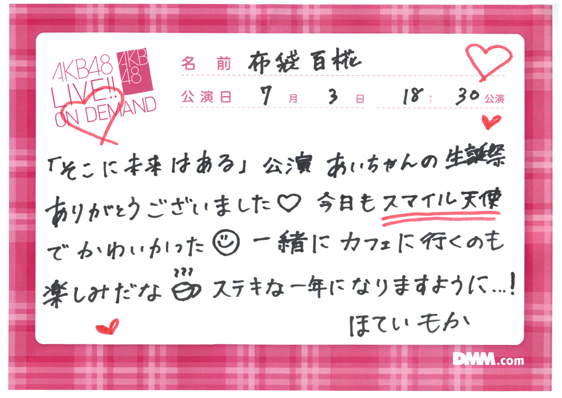 AKB48
LIVE!!
ON DEMAND
AKB
48
名前 布袋百椛
公演日 7月3日 18:30公演
「そこに未来はある」公演 あいちゃんの生誕祭
ありがとうございました♡ 今日もスマイル天使
でかわいかった☺ 一緒にカフェに行くのも
楽しみだな☕ ステキな一年になりますように...!
ほてい もか
DMM.com